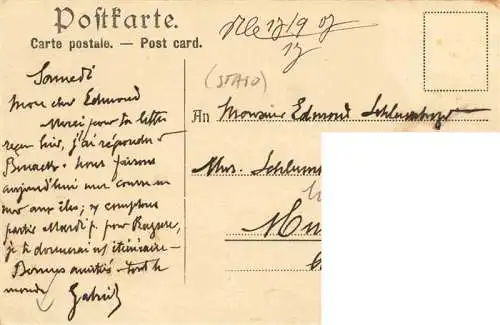 Postkarte.
Carte postale. — Post card.
17/9 07
Samedi
Mon cher Edmond
Merci pour ta lettre
reçue hier, j'ai répondu à
nous faisons
aujourd'hui une course en
mer aux îles; y comptons
partir Mardi p. pour Raguse,
je te donnerai ns itinéraire —
Bonnes amitiés — tout le
monde
Gabriel
An Monsieur Edmond Schlumberger
Mrs. Schlum
Mu